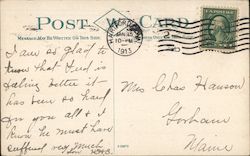 POST CARD
MESSAGE MAY BE WRITTEN ON THIS SIDE
JAN 15
10 - PM
1913
I am so glad to
know that Fred is
feeling better it
has been so hard
for you all &
know he must have
suffered very much
Mrs Chas Hanson
Gorham
Maine